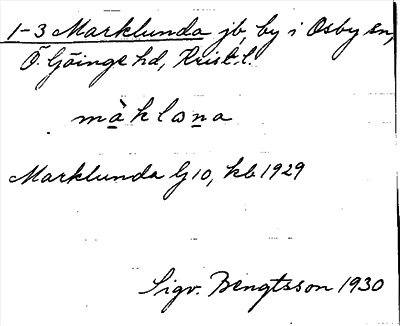 1-3 Marklunda jb, by i Osby sn,
Ö. Göinge hd, Krist. l.
màklọna
Marklunda G10, kb 1929
Sigv. Bengtsson 1930